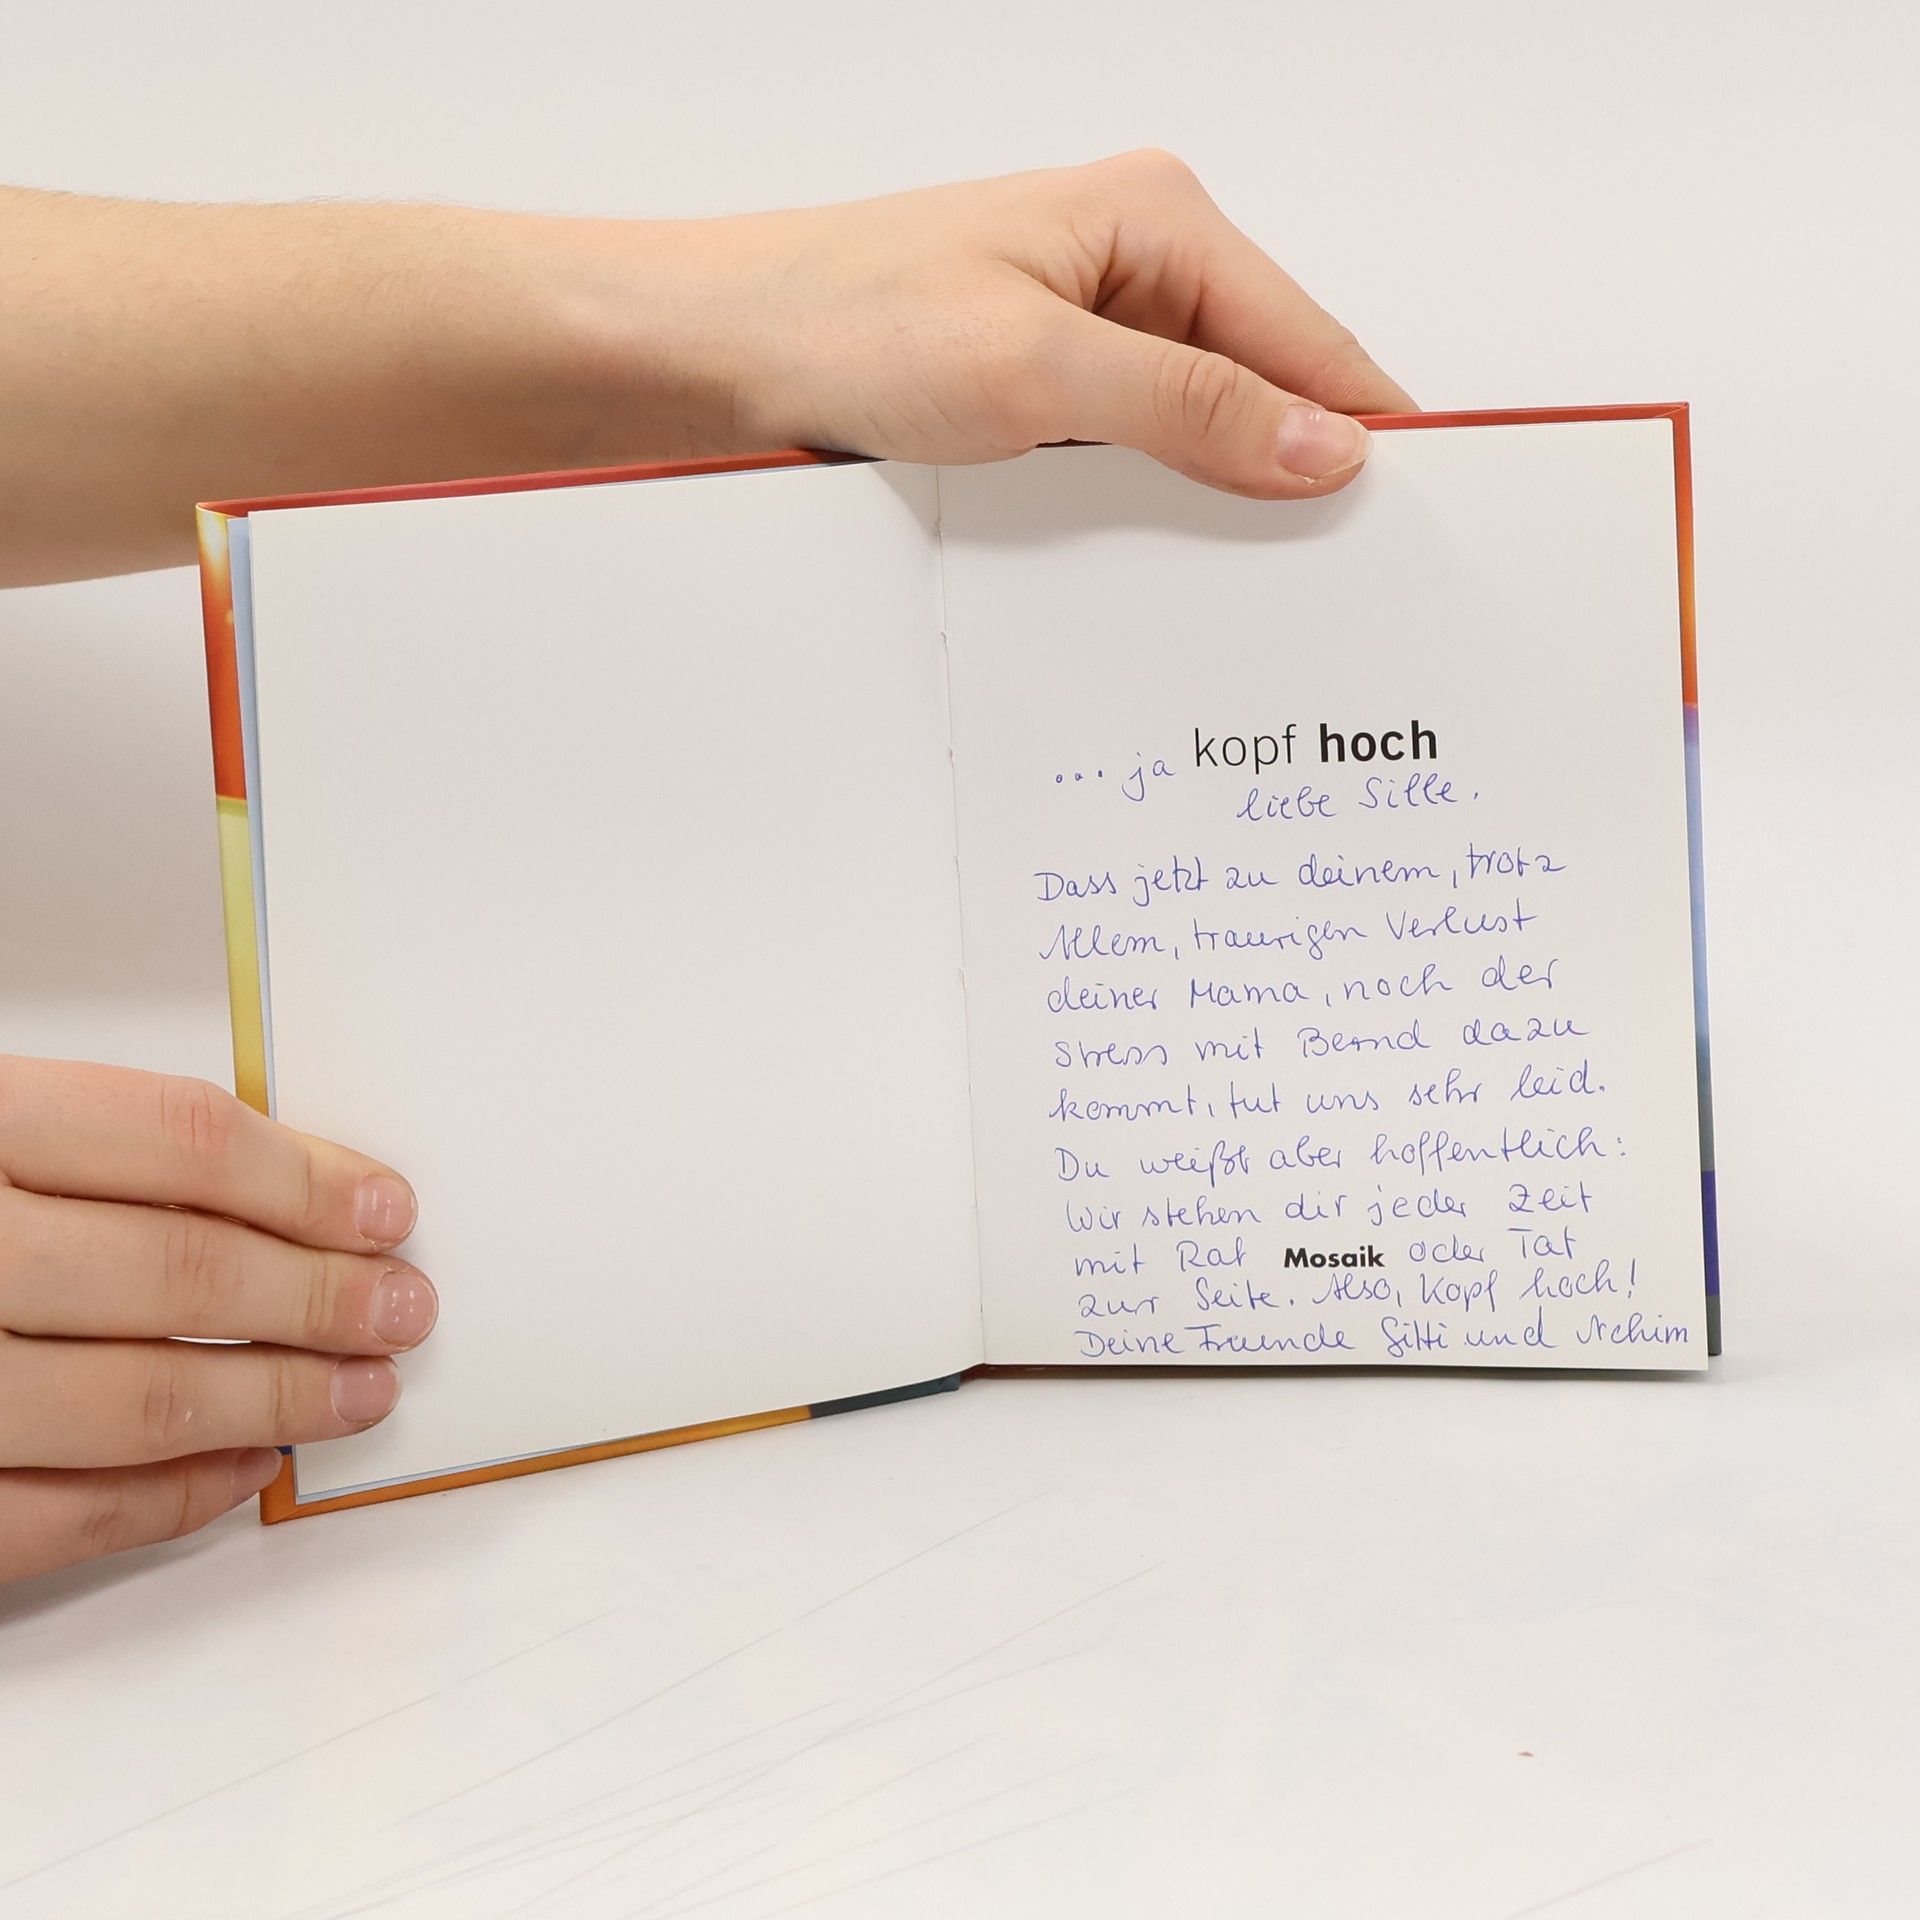 ... ja kopf hoch
liebe Sille.
Dass jetzt zu deinem, trotz
Allem, traurigen Verlust
deiner Mama, noch der
Stress mit Bernd dazu
kommt, tut uns sehr leid.
Du weißt aber hoffentlich:
Wir stehen dir jeder Zeit
mit Rat Mosaik oder Tat
zur Seite. Also, Kopf hoch!
Deine Freunde Gitti und Achim